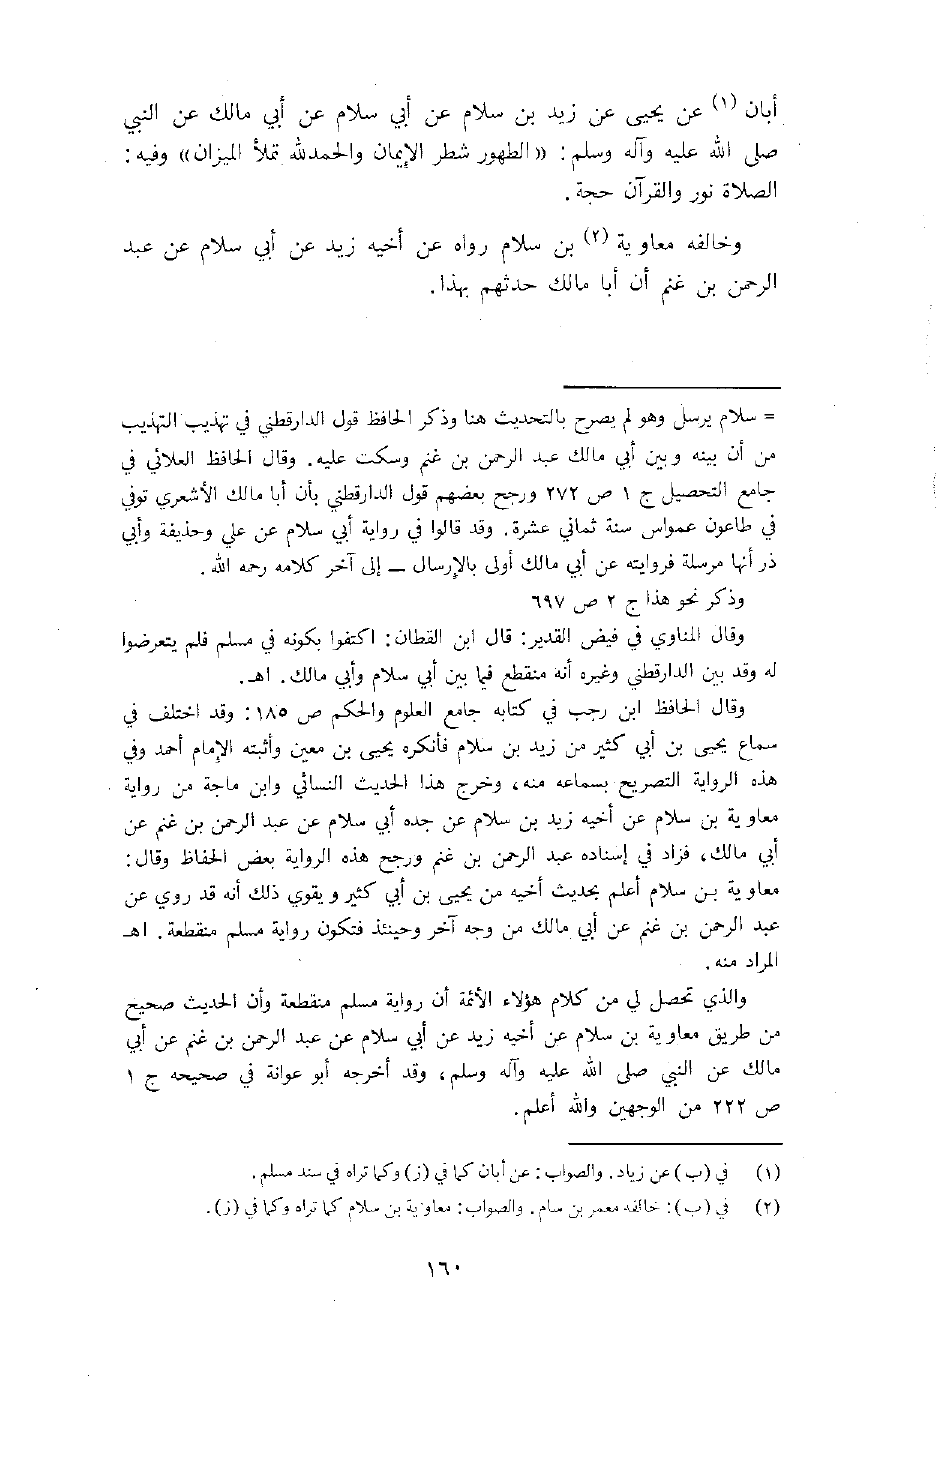 أبان (١) عن يحيى عن زيد بن سلام عن أبي سلام عن أبي مالك عن النبي
صلى الله عليه وآله وسلم: «الطهور شطر الإيمان والحمدلله تملأ الميزان» وفيه:
الصلاة نور والقرآن حجة.
وخالفه معاوية (٢) بن سلام رواه عن أخيه زيد عن أبي سلام عن عبد
الرحمن بن غنم أن أبا مالك حدثهم بهذا.
= سلام يرسل وهو لم يصرح بالتحديث هنا وذكر الحافظ قول الدارقطني في تهذيب التهذيب
من أن بينه وبين أبي مالك عبد الرحمن بن غنم وسكت عليه. وقال الحافظ العلائي في
جامع التحصيل ج ١ ص ٢٧٢ ورجح بعضهم قول الدارقطني بأن أبا مالك الأشعري توفي
في طاعون عمواس سنة ثماني عشرة. وقد قالوا في رواية أبي سلام عن علي وحذيفة وأبي
ذر أنها مرسلة فروايته عن أبي مالك أولى بالإرسال ــ إلى آخر كلامه رحمه الله.
وذكر نحو هذا ج ٢ ص ٦٩٧
وقال المناوي في فيض القدير: قال ابن القطان: اكتفوا بكونه في مسلم فلم يتعرضوا
له وقد بين الدارقطني وغيره أنه منقطع فيما بين أبي سلام وأبي مالك. اهـ.
وقال الحافظ ابن رجب في كتابه جامع العلوم والحكم ص ١٨٥: وقد اختلف في
سماع يحيى بن أبي كثير من زيد بن سلام فأنكره يحيى بن معين وأثبته الإمام أحمد وفي
هذه الرواية التصريح بسماعه منه، وخرج هذا الحديث النسائي وابن ماجة من رواية
معاوية بن سلام عن أخيه زيد بن سلام عن جده أبي سلام عن عبد الرحمن بن غنم عن
أبي مالك، فزاد في إسناده عبد الرحمن بن غنم ورجح هذه الرواية بعض الحفاظ وقال:
معاوية بن سلام أعلم بحديث أخيه من يحيى بن أبي كثير ويقوي ذلك أنه قد روي عن
عبد الرحمن بن غنم عن أبي مالك من وجه آخر وحينئذ فتكون رواية مسلم منقطعة. اهـ
المراد منه.
والذي تحصل لي من كلام هؤلاء الأئمة أن رواية مسلم منقطعة وأن الحديث صحيح
من طريق معاوية بن سلام عن أخيه زيد عن أبي سلام عن عبد الرحمن بن غنم عن أبي
مالك عن النبي صلى الله عليه وآله وسلم، وقد أخرجه أبو عوانة في صحيحه ج ١
ص ٢٢٢ من الوجهين والله أعلم.
(١) في (ب) عن زياد. والصواب: عن أبان كما في (ز) وكما تراه في سند مسلم.
(٢) في (ب): خالفه معمر بن سام. والصواب: معاوية بن سلام كما تراه وكما في (ز).
١٦٠